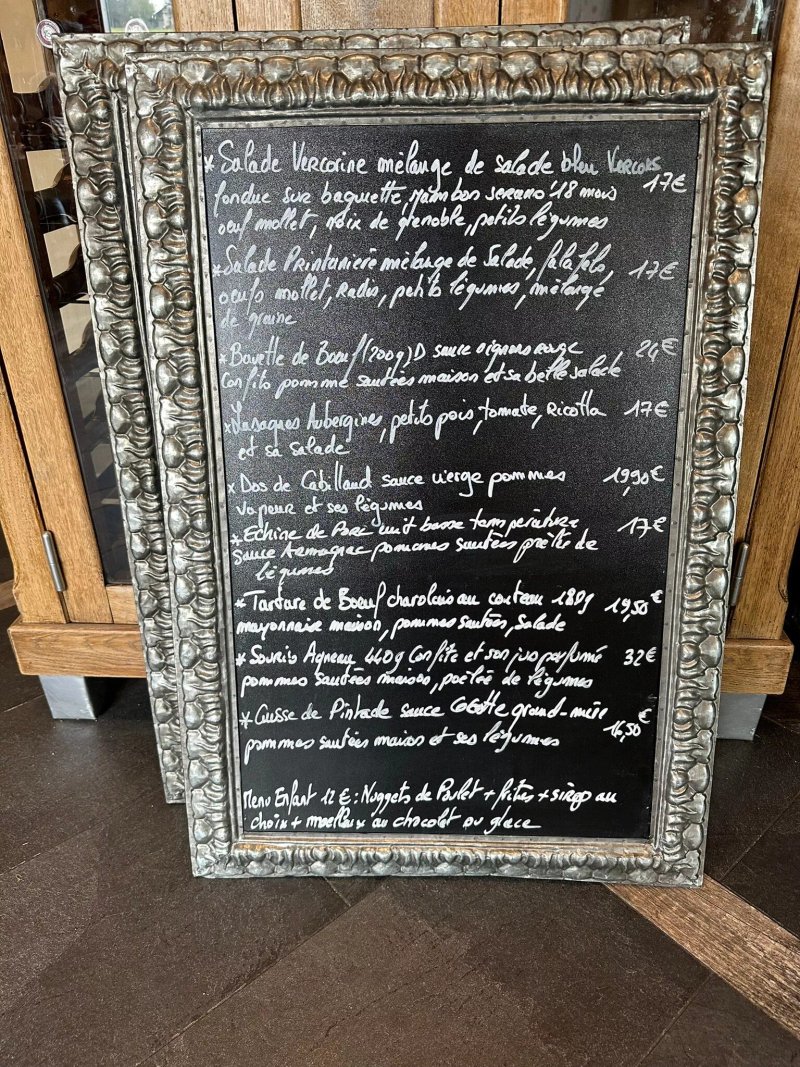 * Salade Vercorine mélange de salade bleu Vercors
fondue sur baguette, Jambon serano 18 mois 17€
oeuf mollet, noix de grenoble, petits légumes
* Salade Printanière mélange de Salade, falafels, 17€
oeufs mollet, Radis, petits légumes, mélange
de graine
* Bavette de Boeuf (200g) D sauce oignons rouge 24€
Confits pomme sautées maison et sa belle salade
* Lasagnes Aubergines, petits pois, tomate, Ricotta 17€
et sa salade
* Dos de Cabillaud sauce vierge pommes 19,90€
vapeur et ses légumes
* Echine de Porc cuit basse température 17€
Sauce Armagnac pommes sautées poêlée de
légumes
* Tartare de Boeuf charolais au couteau 180g 19,50€
mayonnaise maison, pommes sautées, Salade
* Souris Agneau 440g Confite et son jus parfumé 32€
pommes sautées maison, poêlée de légumes
* Cuisse de Pintade sauce Cocotte grand-mère 16,50€
pommes sautées maison et ses légumes
Menu Enfant 12€: Nuggets de Poulet + frites + sirop au
choix + moelleux au chocolat ou glace